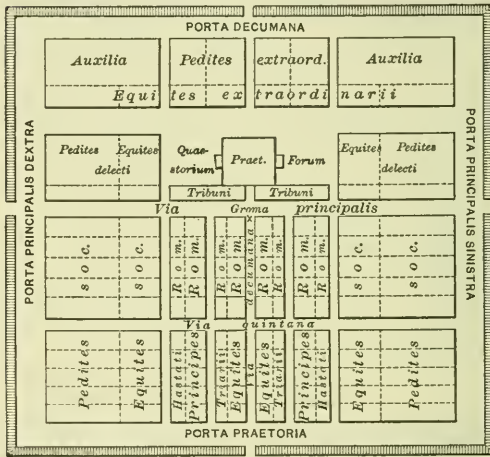 PORTA DECUMANA
Auxilia
Pedites
extraord.
Auxilia
Equi tes ex traordi narii
PORTA PRINCIPALIS DEXTRA
PORTA PRINCIPALIS SINISTRA
Pedites Equites
delecti
Quae-
storium
Praet.
Forum
Equites Pedites
delecti
Tribuni
Tribuni
Via Groma principalis
soc.
soc.
Rom.
Rom.
Rom.
Rom.
decumana
Rom.
Rom.
Rom.
Rom.
soc.
soc.
Via quintana
Pedites
Equites
Hastati
Principes
Triarii
Equites
Via
Equites
Triarii
Principes
Hastati
Equites
Pedites
PORTA PRAETORIA